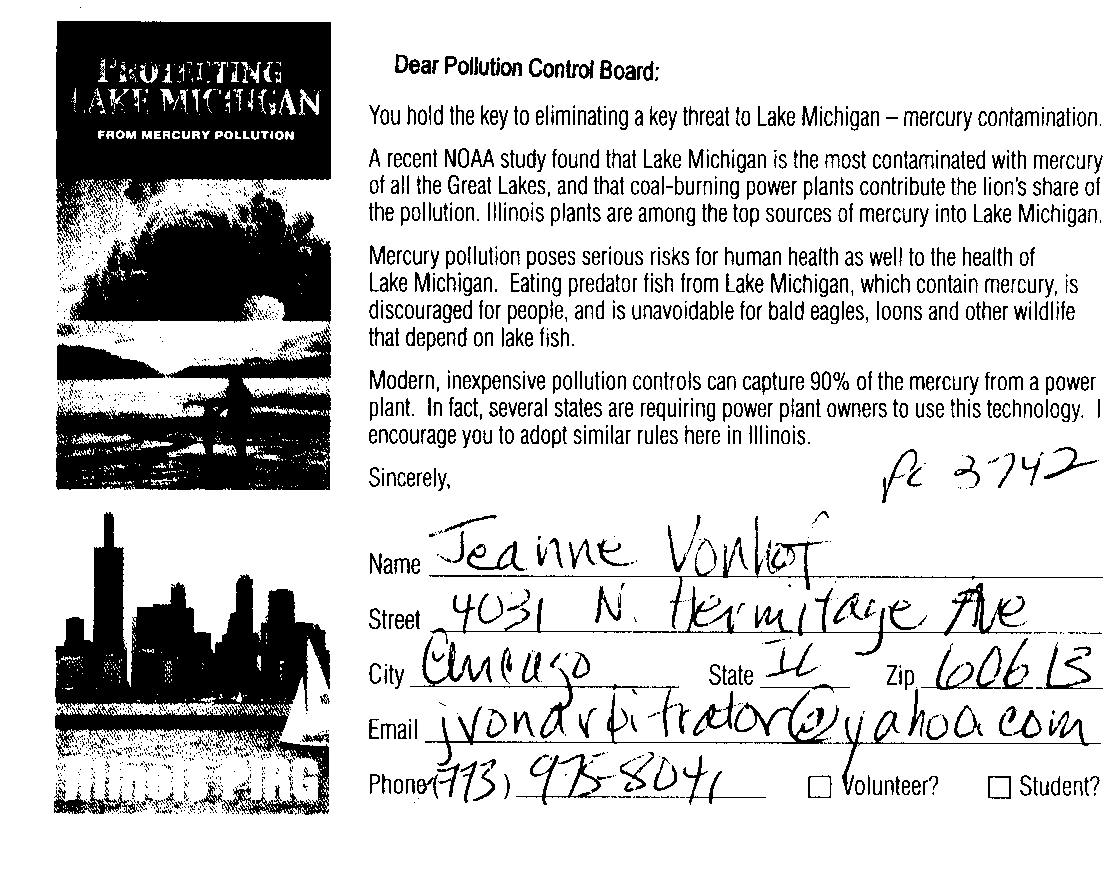 PROTECTING
LAKE MICHIGAN
FROM MERCURY POLLUTION
Illinois PIRG
Dear Pollution Control Board:
You hold the key to eliminating a key threat to Lake Michigan – mercury contamination.
A recent NOAA study found that Lake Michigan is the most contaminated with mercury
of all the Great Lakes, and that coal-burning power plants contribute the lion's share of
the pollution. Illinois plants are among the top sources of mercury into Lake Michigan.
Mercury pollution poses serious risks for human health as well to the health of
Lake Michigan. Eating predator fish from Lake Michigan, which contain mercury, is
discouraged for people, and is unavoidable for bald eagles, loons and other wildlife
that depend on lake fish.
Modern, inexpensive pollution controls can capture 90% of the mercury from a power
plant. In fact, several states are requiring power plant owners to use this technology. I
encourage you to adopt similar rules here in Illinois.
Sincerely,
PC 3742
Name Jeanne Vonhof
Street 4031 N. Hermitage Ave
City Chicago State IL Zip 60613
Email jvonarbitrator@yahoo.com
Phone (773) 975-8041 Volunteer? Student?